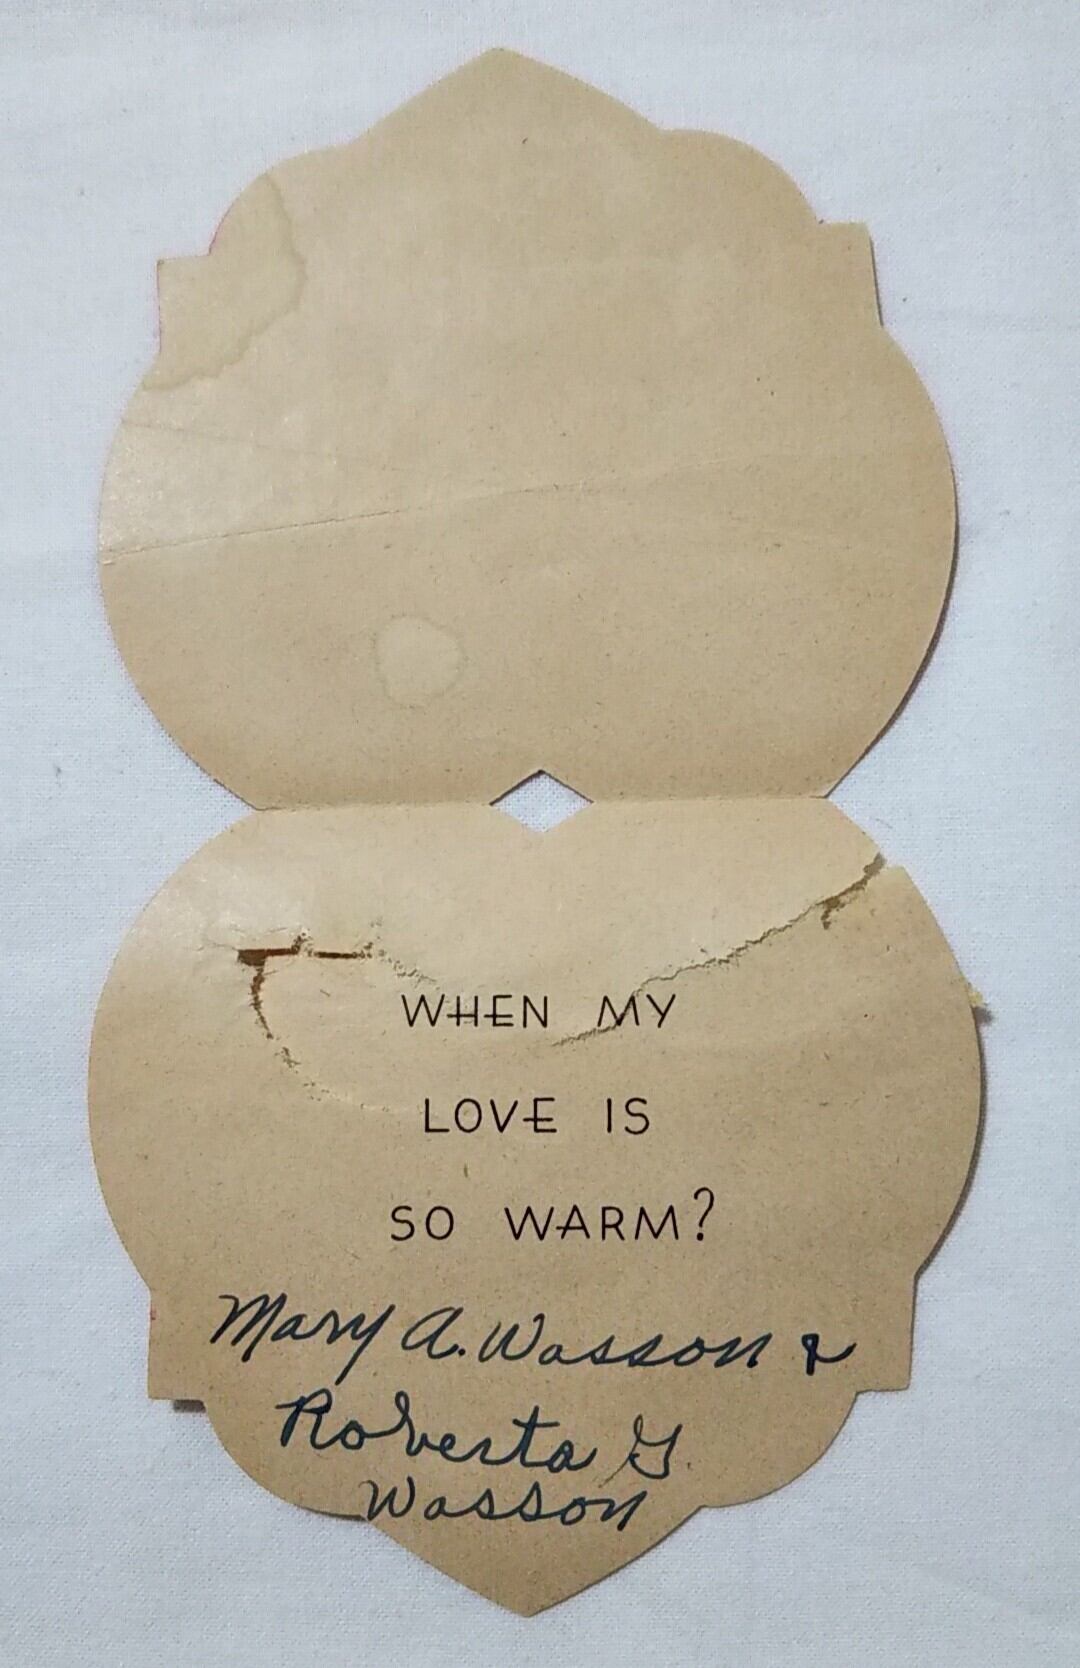 WHEN MY
LOVE IS
SO WARM?
Mary A. Wasson &
Roberta G.
Wasson